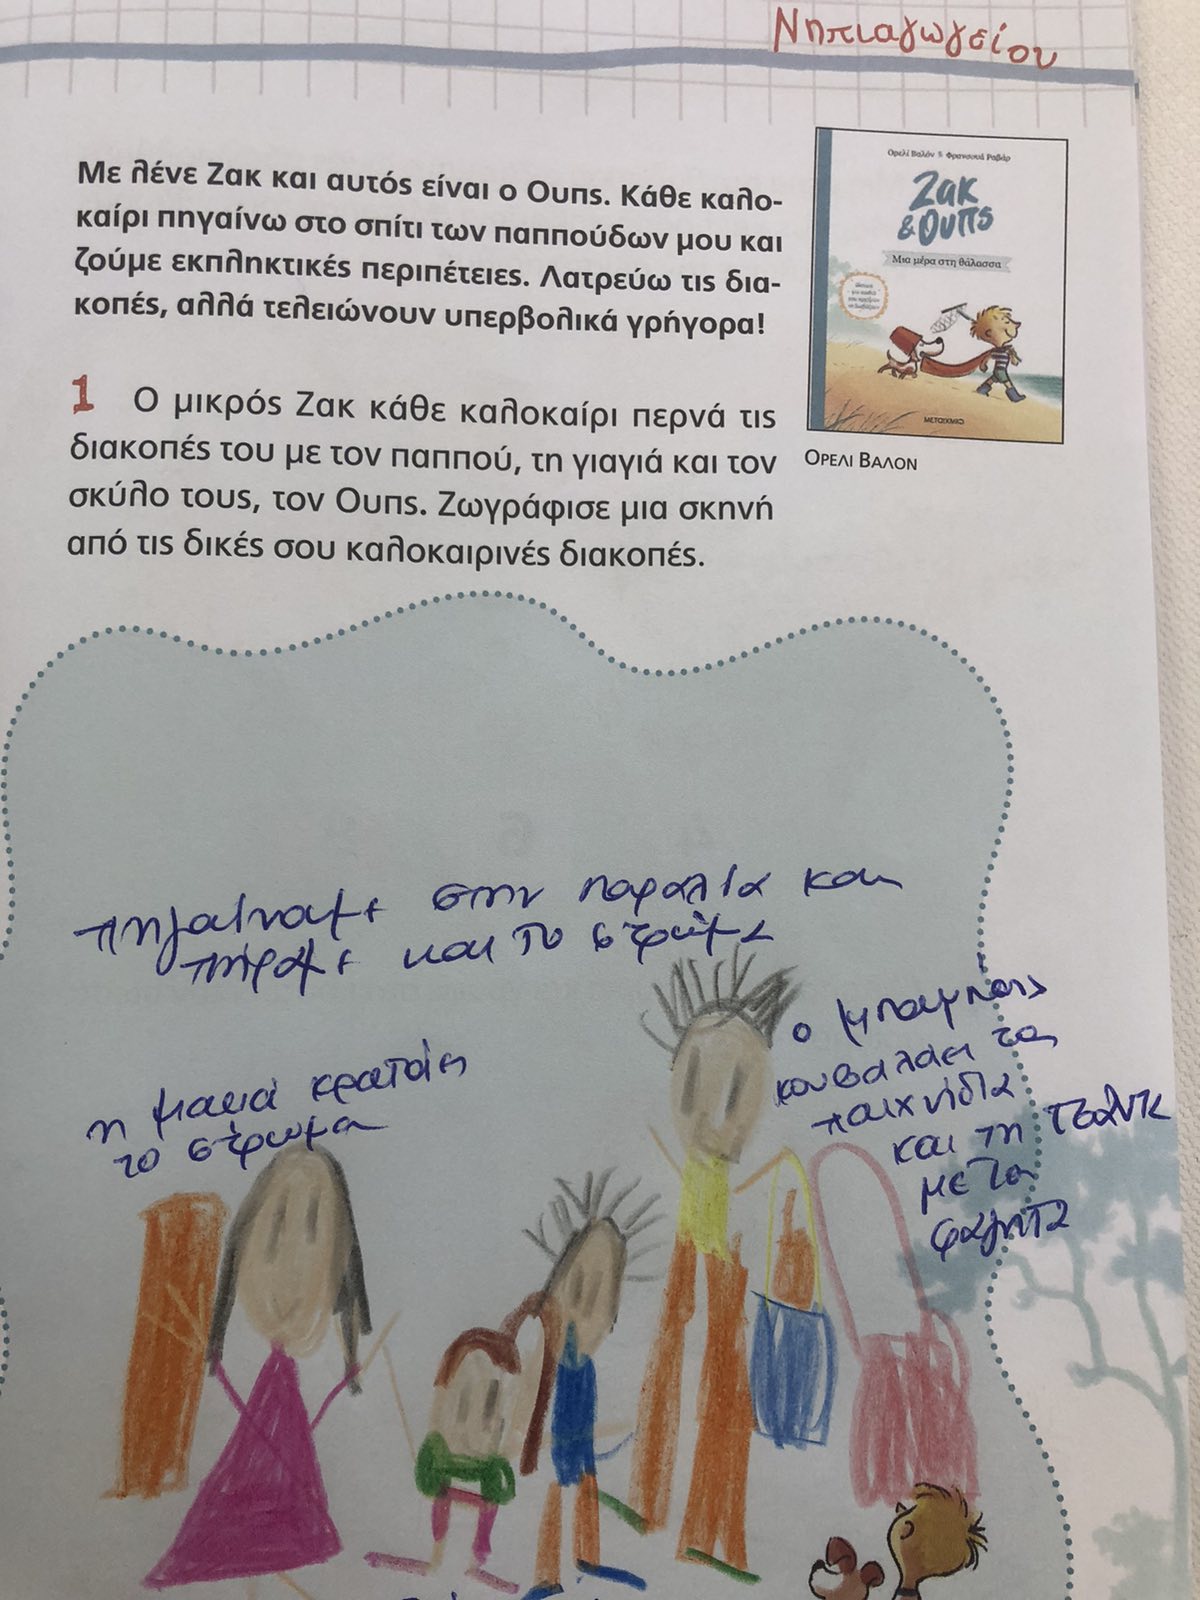 Νηπιαγωγείου
Με λένε Ζακ και αυτός είναι ο Ουπς. Κάθε καλο-
καίρι πηγαίνω στο σπίτι των παππούδων μου και
ζούμε εκπληκτικές περιπέτειες. Λατρεύω τις δια-
κοπές, αλλά τελειώνουν υπερβολικά γρήγορα!
Ορελί Βαλόν & Φρανσουά Ραβάρ
Ζακ
& Ουπς
Μια μέρα στη θάλασσα
ΜΕΤΑΙΧΜΙΟ
ΟΡΕΛΙ ΒΑΛΟΝ
1 Ο μικρός Ζακ κάθε καλοκαίρι περνά τις
διακοπές του με τον παππού, τη γιαγιά και τον
σκύλο τους, τον Ουπς. Ζωγράφισε μια σκηνή
από τις δικές σου καλοκαιρινές διακοπές.
πηγαίναμε στην παραλία και
πήραμε και το στρώμα
η μαμά κρατάει
το στρώμα
ο μπαμπάς
κουβαλάει τα
παιχνίδια
και τη τσάντα
με τα
φαγητά